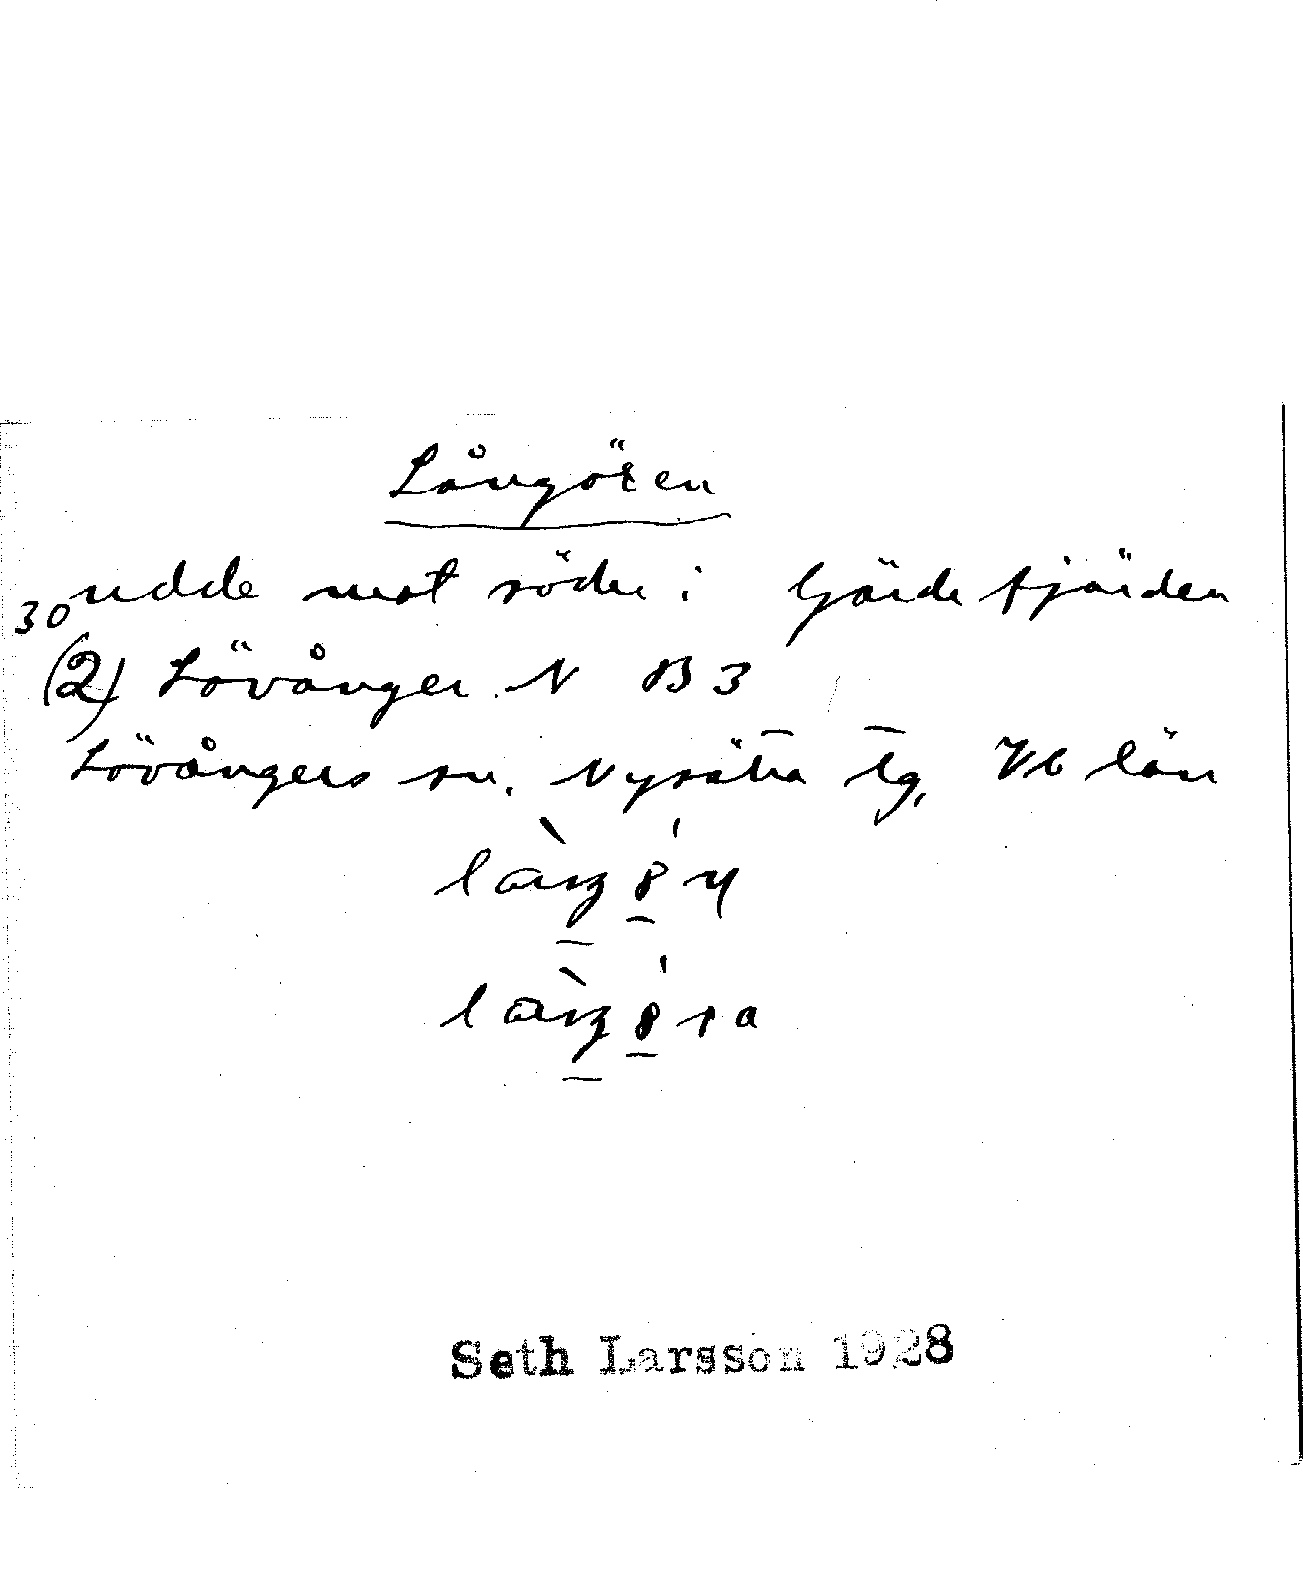 Långören
udde mot söder i Gärdefjärden
30
(2) Lövånger N B 3
Lövångers sn. Nysätra tg, Vb län
Seth Larsson 1928